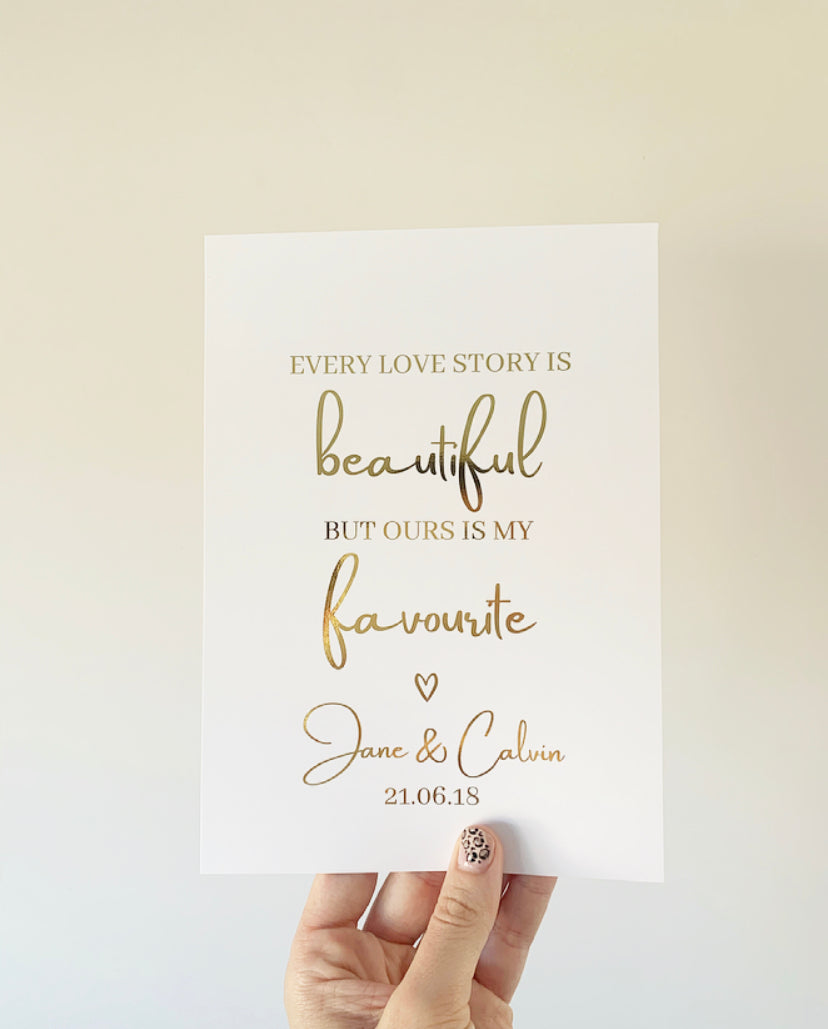 EVERY LOVE STORY IS
beautiful
BUT OURS IS MY
favourite
Jane & Calvin
21.06.18